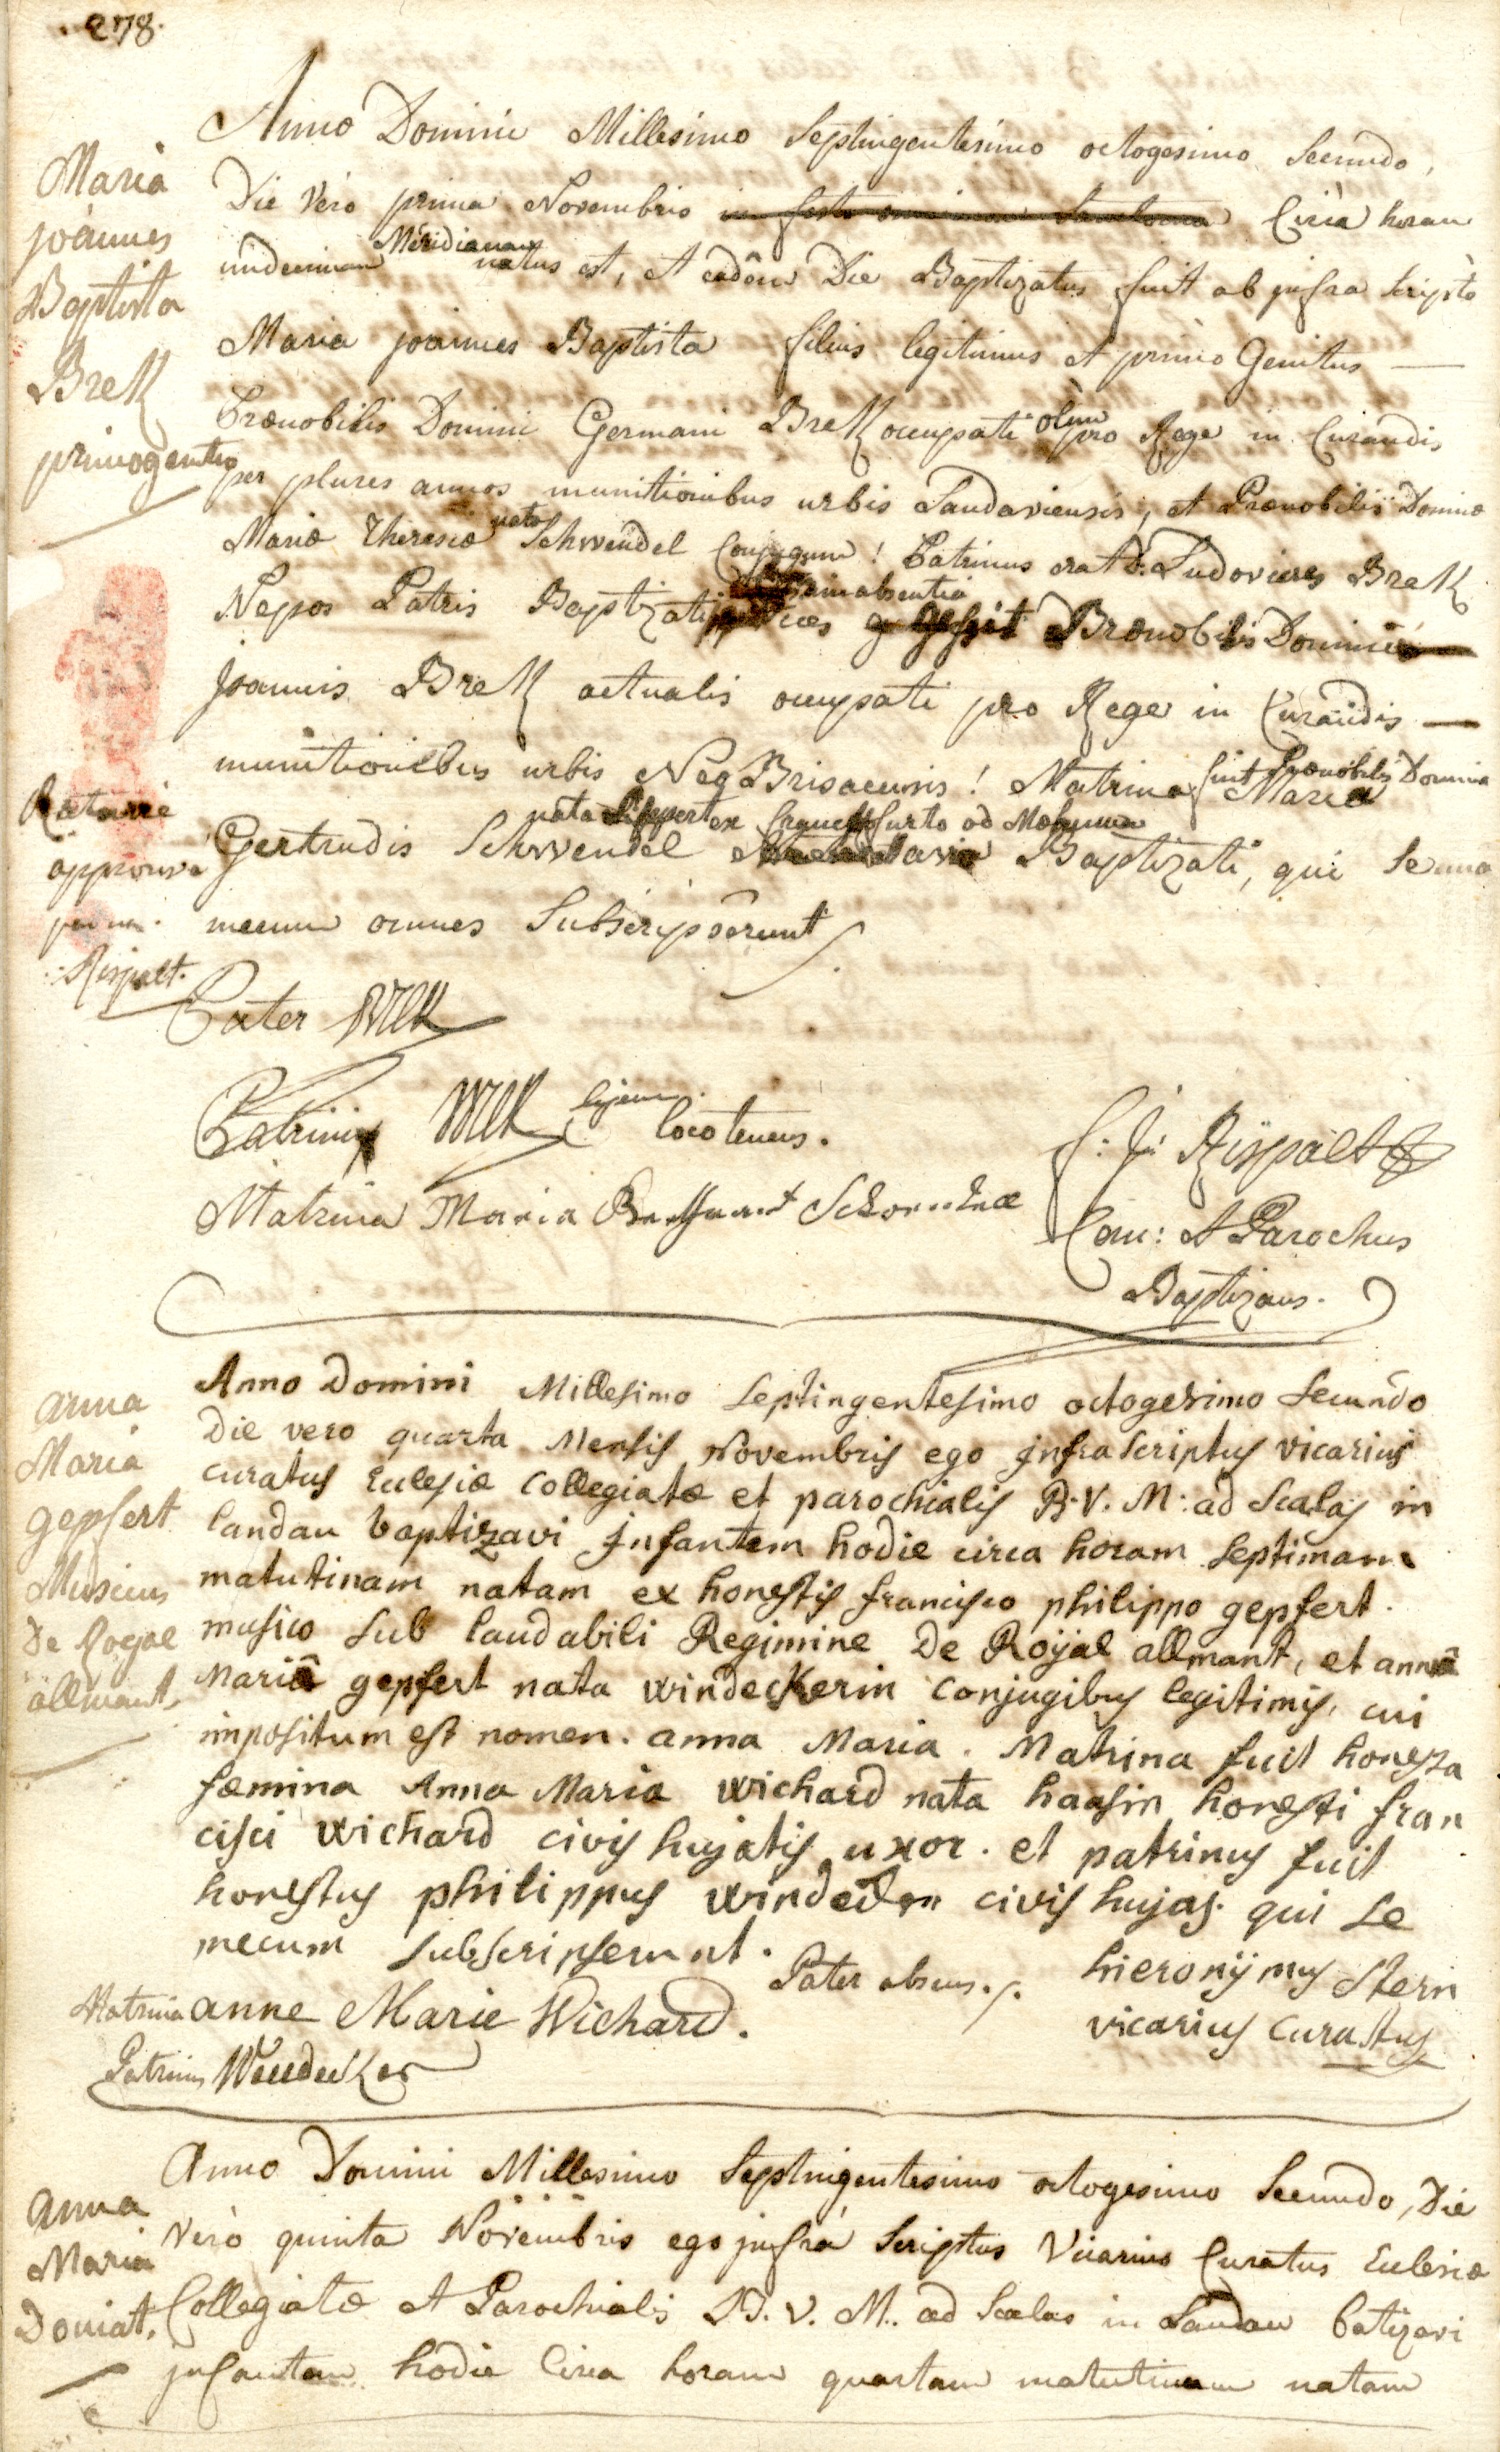 278.
Anno Domini Millesimo Septingentesimo octogesimo Secundo,
Maria
joànnes
Baptista
Brell
primogenitus
Die Verò prima Novembris in festo omnium Sanctorum Circà horam
undecimam Meridianam natus est, et eâdem Die Baptizatus fuit ab jnfra Scripto
Maria joannes Baptista filius legitimus et primò Genitus —
Prænobilis Domini Germani Brell occupati olim pro Rege in Curandis
per plures annos munitionibus urbis Landaviensis, et Prænobilis Dominæ
Mariæ Theresiæ nata Schwendel Conjugum! Patrinus erat D. Ludovicus Brell
Nepos Patris Baptizati in absentia vices gessit Prænobilis Domini
Joannis Brell actualis occupati pro Rege in Curandis —
munitionibus urbis Neo Brisacensis! Matrina fuit Prænobilis Domina Maria
Gertrudis Schwendel nata Lippert ex Francffurto ad Mœnum Baptizati, qui Se una
mecum omnes Subscripserunt
Raturre
approuvé
par moi.
Rispalt.
Pater Brell
Patrinus Brell ejus locotenens.
Matrina Maria
F: J: Rispalt
Can: et Parochus
Baptizans.
anna
Maria
gepfert
Musicus
De Royal
allmant
Anno Domini Millesimo Septingentesimo octogesimo Secundo
Die vero quarta Mensis Novembris ego jnfra Scriptus vicarius
curatus Eclesiæ Collegiatæ et parochialis B. V. M: ad Scalas in
landau baptizavi jnfantem hodie circa horam Septimam
matutinam natam ex honestis francisco philippo gepfert.
musico Sub laudabili Regimine De Roÿal allmant, et annâ
Mariâ gepfert nata windeckerin conjugibus legitimis, cui
impositum est nomen. anna Maria. Matrina fuit honesta
fœmina Anna Maria wichard nata haasin honesti fran
cisci wichard civis hujatis uxor. et patrinus fuit
honestus philippus windecker civis hujas. qui Se
mecum Subscripserunt.
Pater absens./.
hieronÿmus Stern
vicarius curatus
Matrina anne Marie Wichard.
Patrinus Wendecker
Anna
Maria
Doniat.
Anno Domini Millesimo Septingentesimo octogesimo Secundo, Die
Verò quinta Novembris ego jnfrà Scriptus Vicarius Curatus Eclesiæ
Collegiatæ et Parochialis B. V. M. ad Scalas in Landau batizavi
jnfantem hodie Circa horam quartam matutinam natam